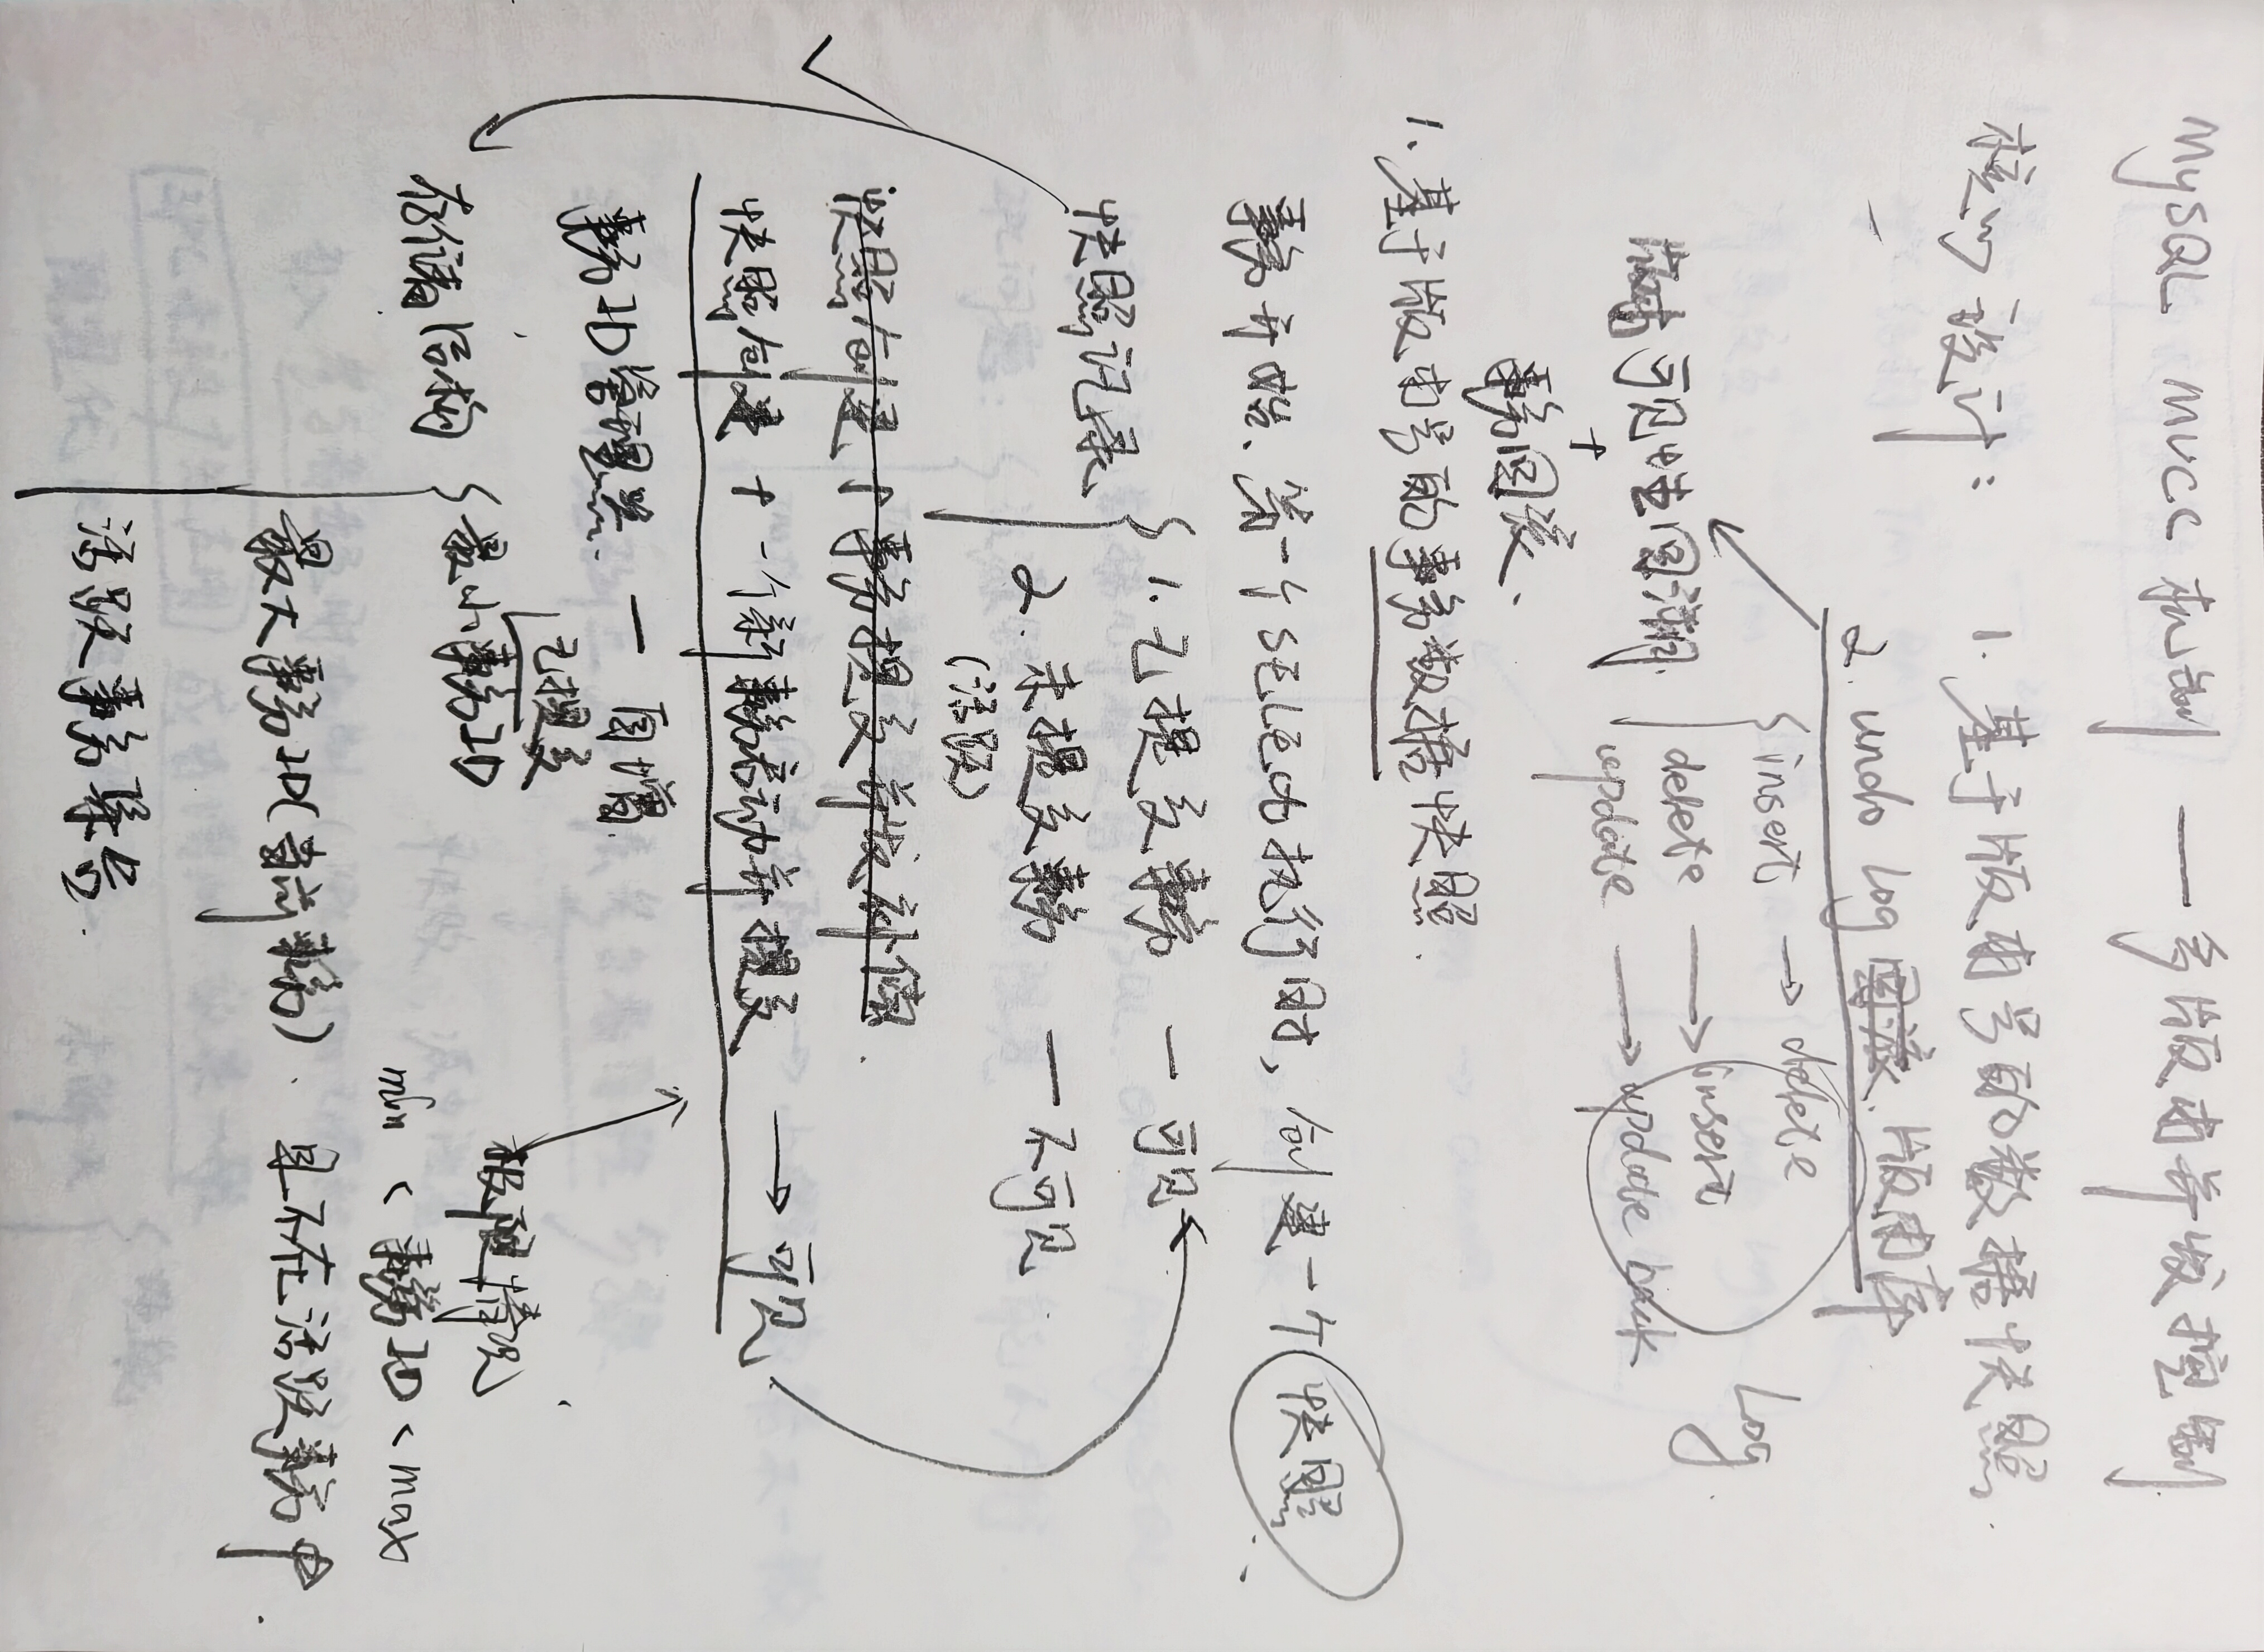 MySQL MVCC 机制 — 多版本并发控制
核心设计： 1. 基于版本号的数据快照.
2. undo Log 回滚. 版本库
insert → delete
Log
delete → insert
update → update back
版本可见性回溯.
+
事务回滚、
1. 基于版本号的事务数据快照.
事务开始、第一个SELECT执行时，创建一个快照..
快照记录
1. 已提交事务 — 可见
2. 未提交事务 — 不可见
(活跃)
快照创建 + 事务提交并发补偿.
快照创建 + 一个新事务启动并提交 → 可见
事务ID管理器. — 自增.
已提交
存储结构
最小事务ID
极限情况
min < 事务ID < max
最大事务ID(当前事务). 且不在活跃事务中.
活跃事务集合.